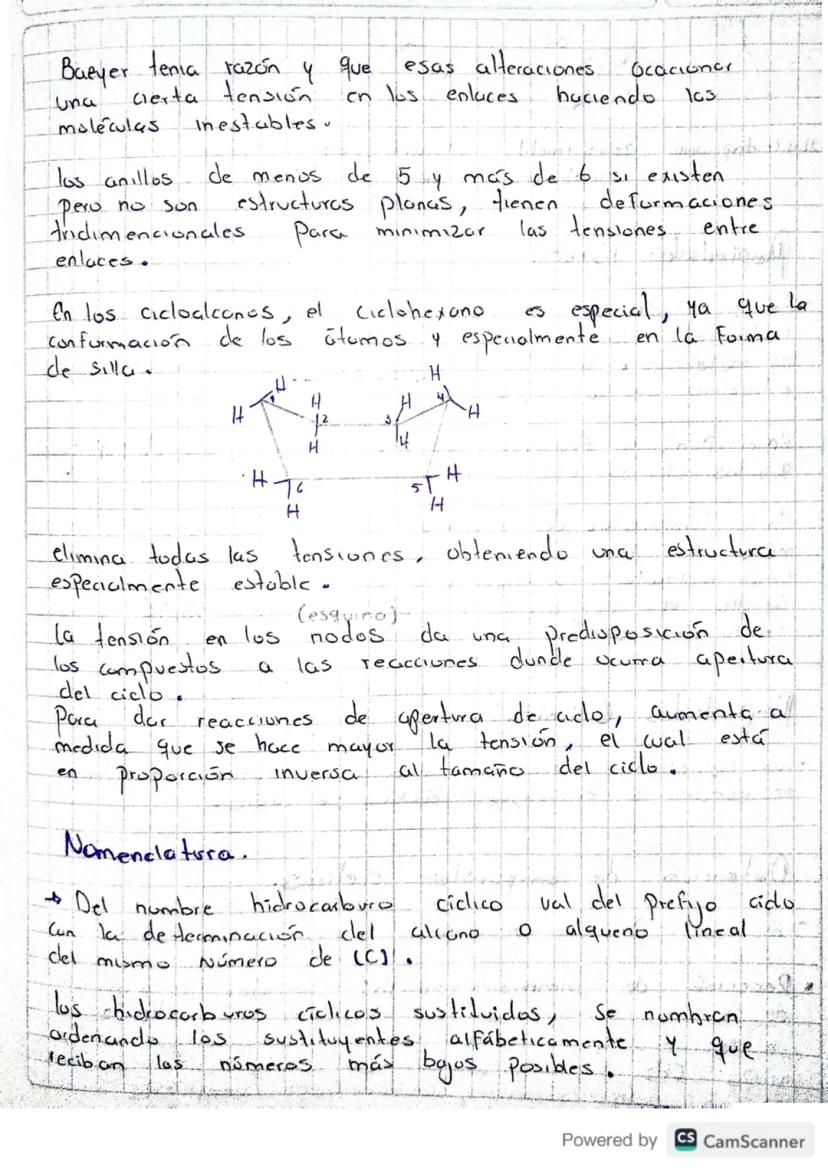 Baeyer tenia razón y que esas alteraciones ocacionar
una cierta tensión en los enlaces haciendo las
moléculas inestables.
los anillos de menos de 5 y más de 6 si existen
pero no son estructuras planas, tienen deformaciones
tridimencionales para minimizar las tensiones entre
enlaces.
En los cicloalcanos, el ciclohexano es especial, ya que la
conformación de los átomos y especialmente en la Forma
de silla.
H
H H H H
1 2 3 4 H
H H
H 6 5 H
H H
elimina todas las tensiones, obteniendo una estructura
especialmente estable.
(esquina)
la tensión en los nodos da una predisposición de
los compuestos a las reacciones dunde ocurra apertura
del ciclo.
Para dar reacciones de apertura de ciclo, aumenta a
medida que se hace mayor la tensión, el cual está
en proporción inversa al tamaño del ciclo.
Nomenclatura.
→ Del nombre hidrocarburo cíclico val del prefijo ciclo
con la determinación del alcano o alqueno lineal
del mismo número de (C).
los hidrocarburos cíclicos sustituidos, se nombran
ordenando los sustituyentes alfábeticamente y que
reciban los números más bajos posibles.
Powered by CS CamScanner